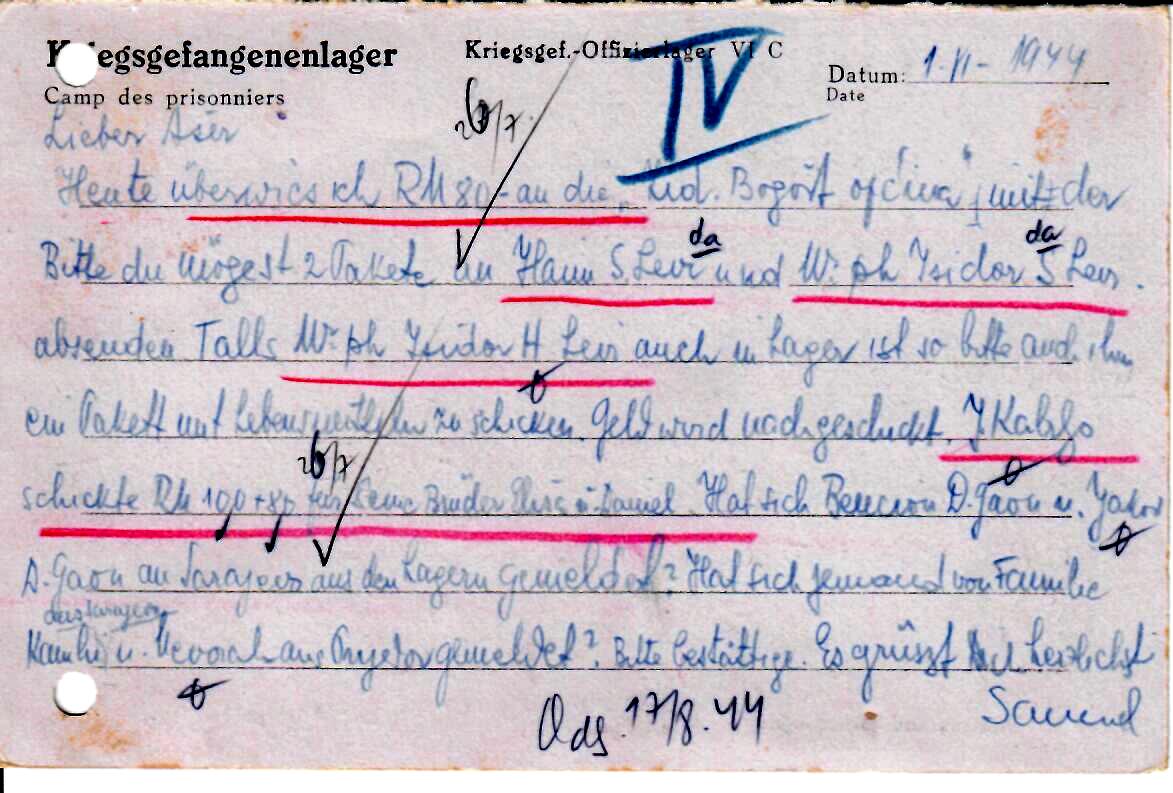 Kriegsgefangenenlager
Kriegsgef.-Offizierlager VI C
Camp des prisonniers
Datum: 1-VI- 1944
Date
IV
26/7
Lieber Aser
Heute überwies ich RM 80- an die „Žid. Bogošt općina“ mit der
da da
Bitte du mögest 2 Pakete an Haim S Levi und W: ph Isidor S Levi.
absenden Falls W: ph Isidor H Levi auch in Lager ist so bitte auch ihm
ein Pakett mit Lebensmitteln zu schicken. Geld wird nachgeschickt. J Kabiljo
26/7
schickte RM 100+80 für seine Brüder u Daniel. Hat sich Bencion D. Gaon u. Jakov
D. Gaon aus Sarajevo aus den Lagern gemeldet? Hat sich jemand von Familie
aus Sarajevo
Kamhi u. aus gemeldet? Bitte bestättige. Es grüsst Dich herzlichst
Samuel
Ods. 17/8. 44